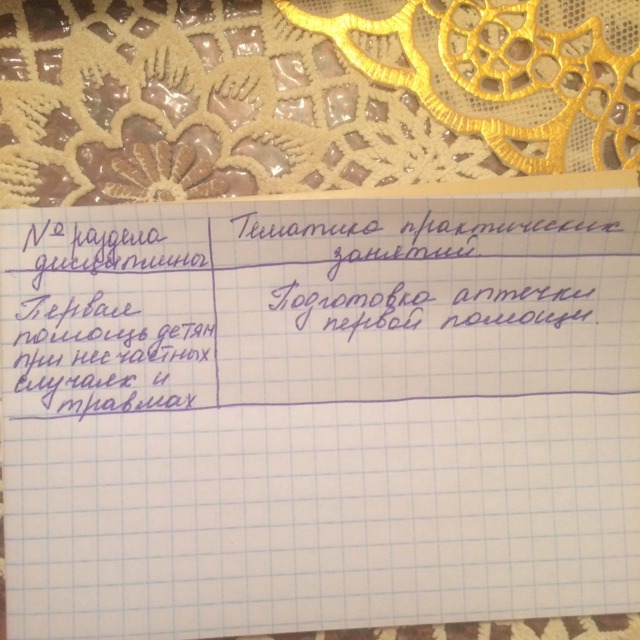 № раздела
дисциплины
Тематика практических
занятий.
Первая
помощь детям
при несчастных
случаях и
травмах
Подготовка аптечки
первой помощи.